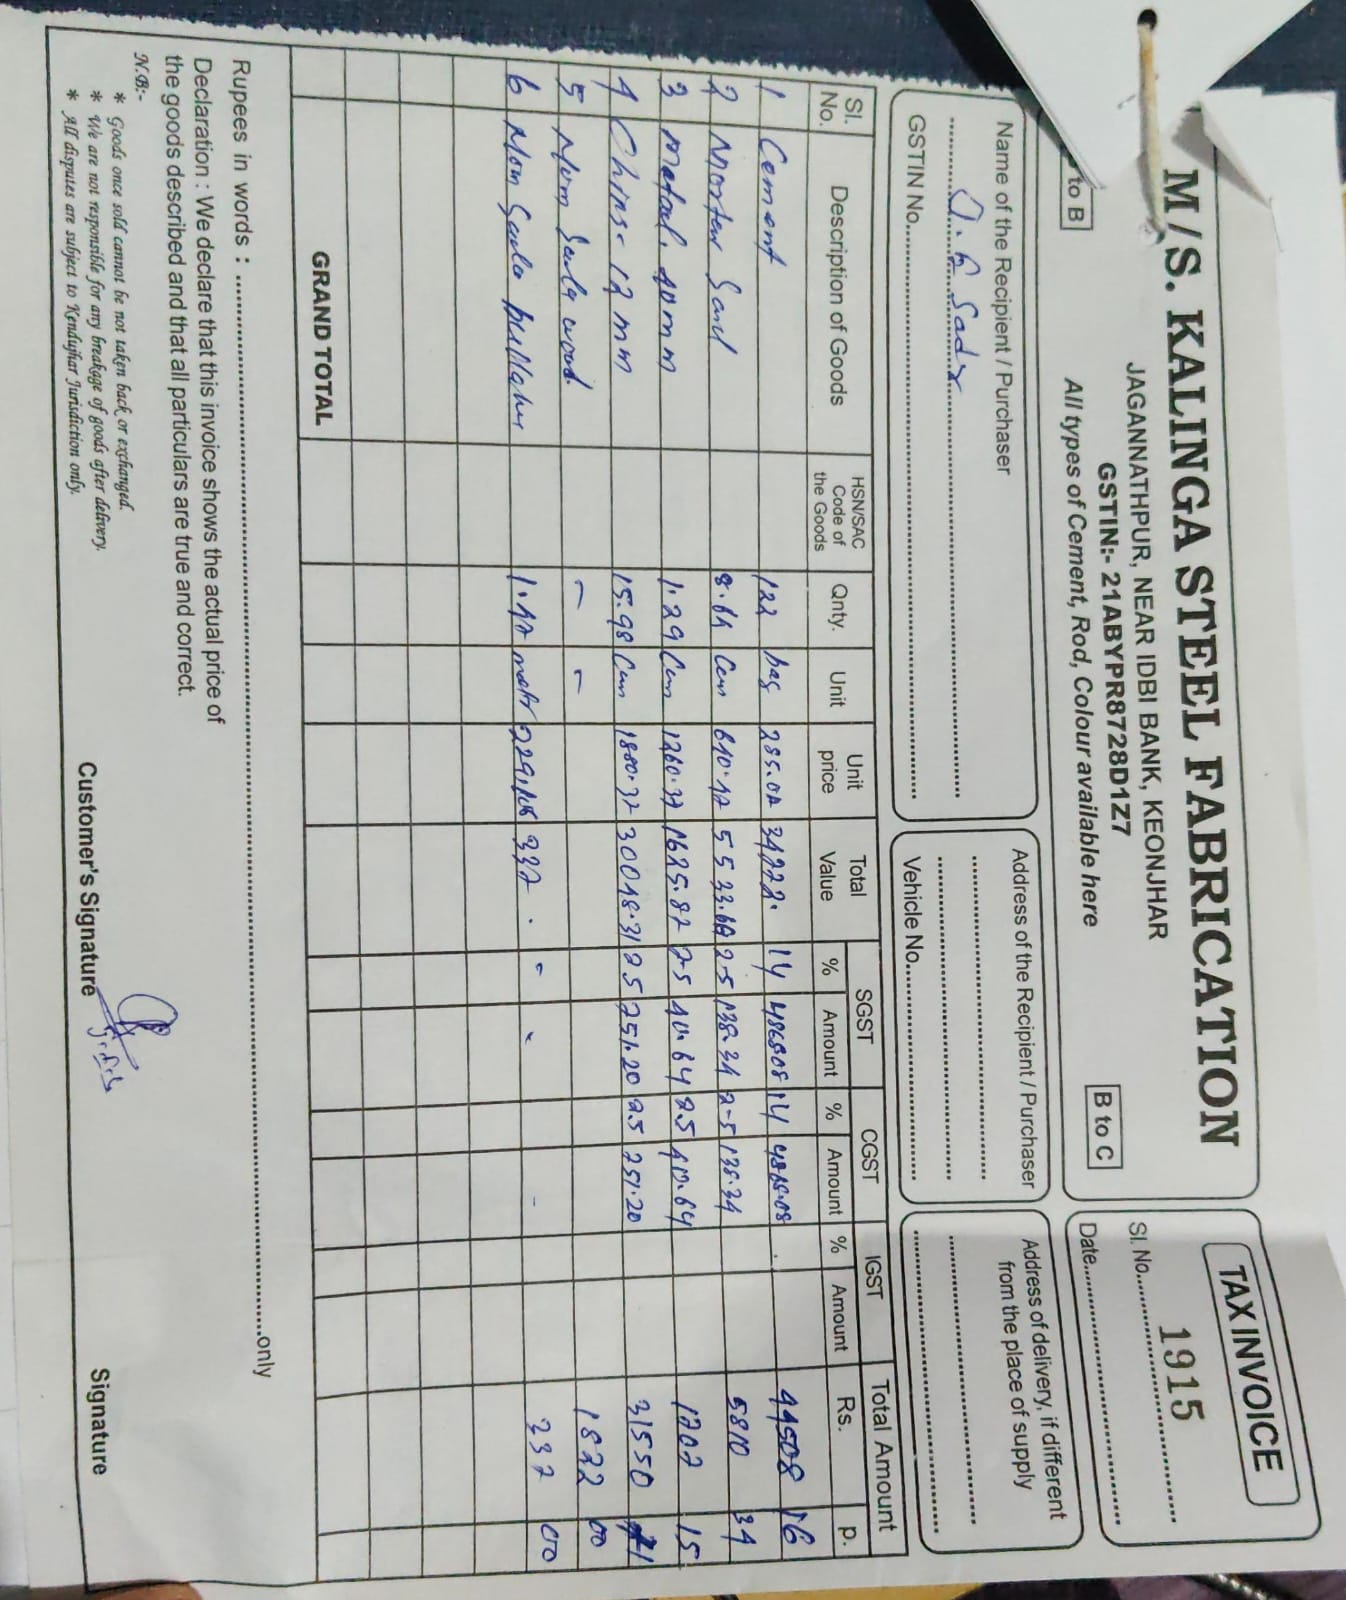 TAX INVOICE
M/S. KALINGA STEEL FABRICATION
JAGANNATHPUR, NEAR IDBI BANK, KEONJHAR
GSTIN:- 21ABYPR8728D1Z7
All types of Cement, Rod, Colour available here
to B
B to C
Sl. No. 1915
Date
Name of the Recipient / Purchaser
GSTIN No.
Address of the Recipient / Purchaser
Vehicle No.
Address of delivery, if different
from the place of supply
Sl. No. Description of Goods HSN/SAC Code of the Goods Qnty. Unit Unit price Total Value SGST % Amount CGST % Amount IGST % Amount Total Amount Rs. P.
1 Cement 122 bag 14 14 44508 16
2 Sand 8.64 Cum 2.5 138.34 2.5 138.34 5810 34
3 40 mm 1.29 Cum 1260.37 1625.87 2.5 40.64 2.5 40.64 15
4 Chips 12 mm 15.98 Cum 30048.31 2.5 751.20 2.5 751.20 31550 71
5 1822 00
6 00
GRAND TOTAL
Rupees in words : only
Declaration : We declare that this invoice shows the actual price of
the goods described and that all particulars are true and correct.
N.B:-
* Goods once sold cannot be not taken back or exchanged.
* We are not responsible for any breakage of goods after delivery.
* All disputes are subject to Kendujhar Jurisdiction only.
Customer's Signature
Signature